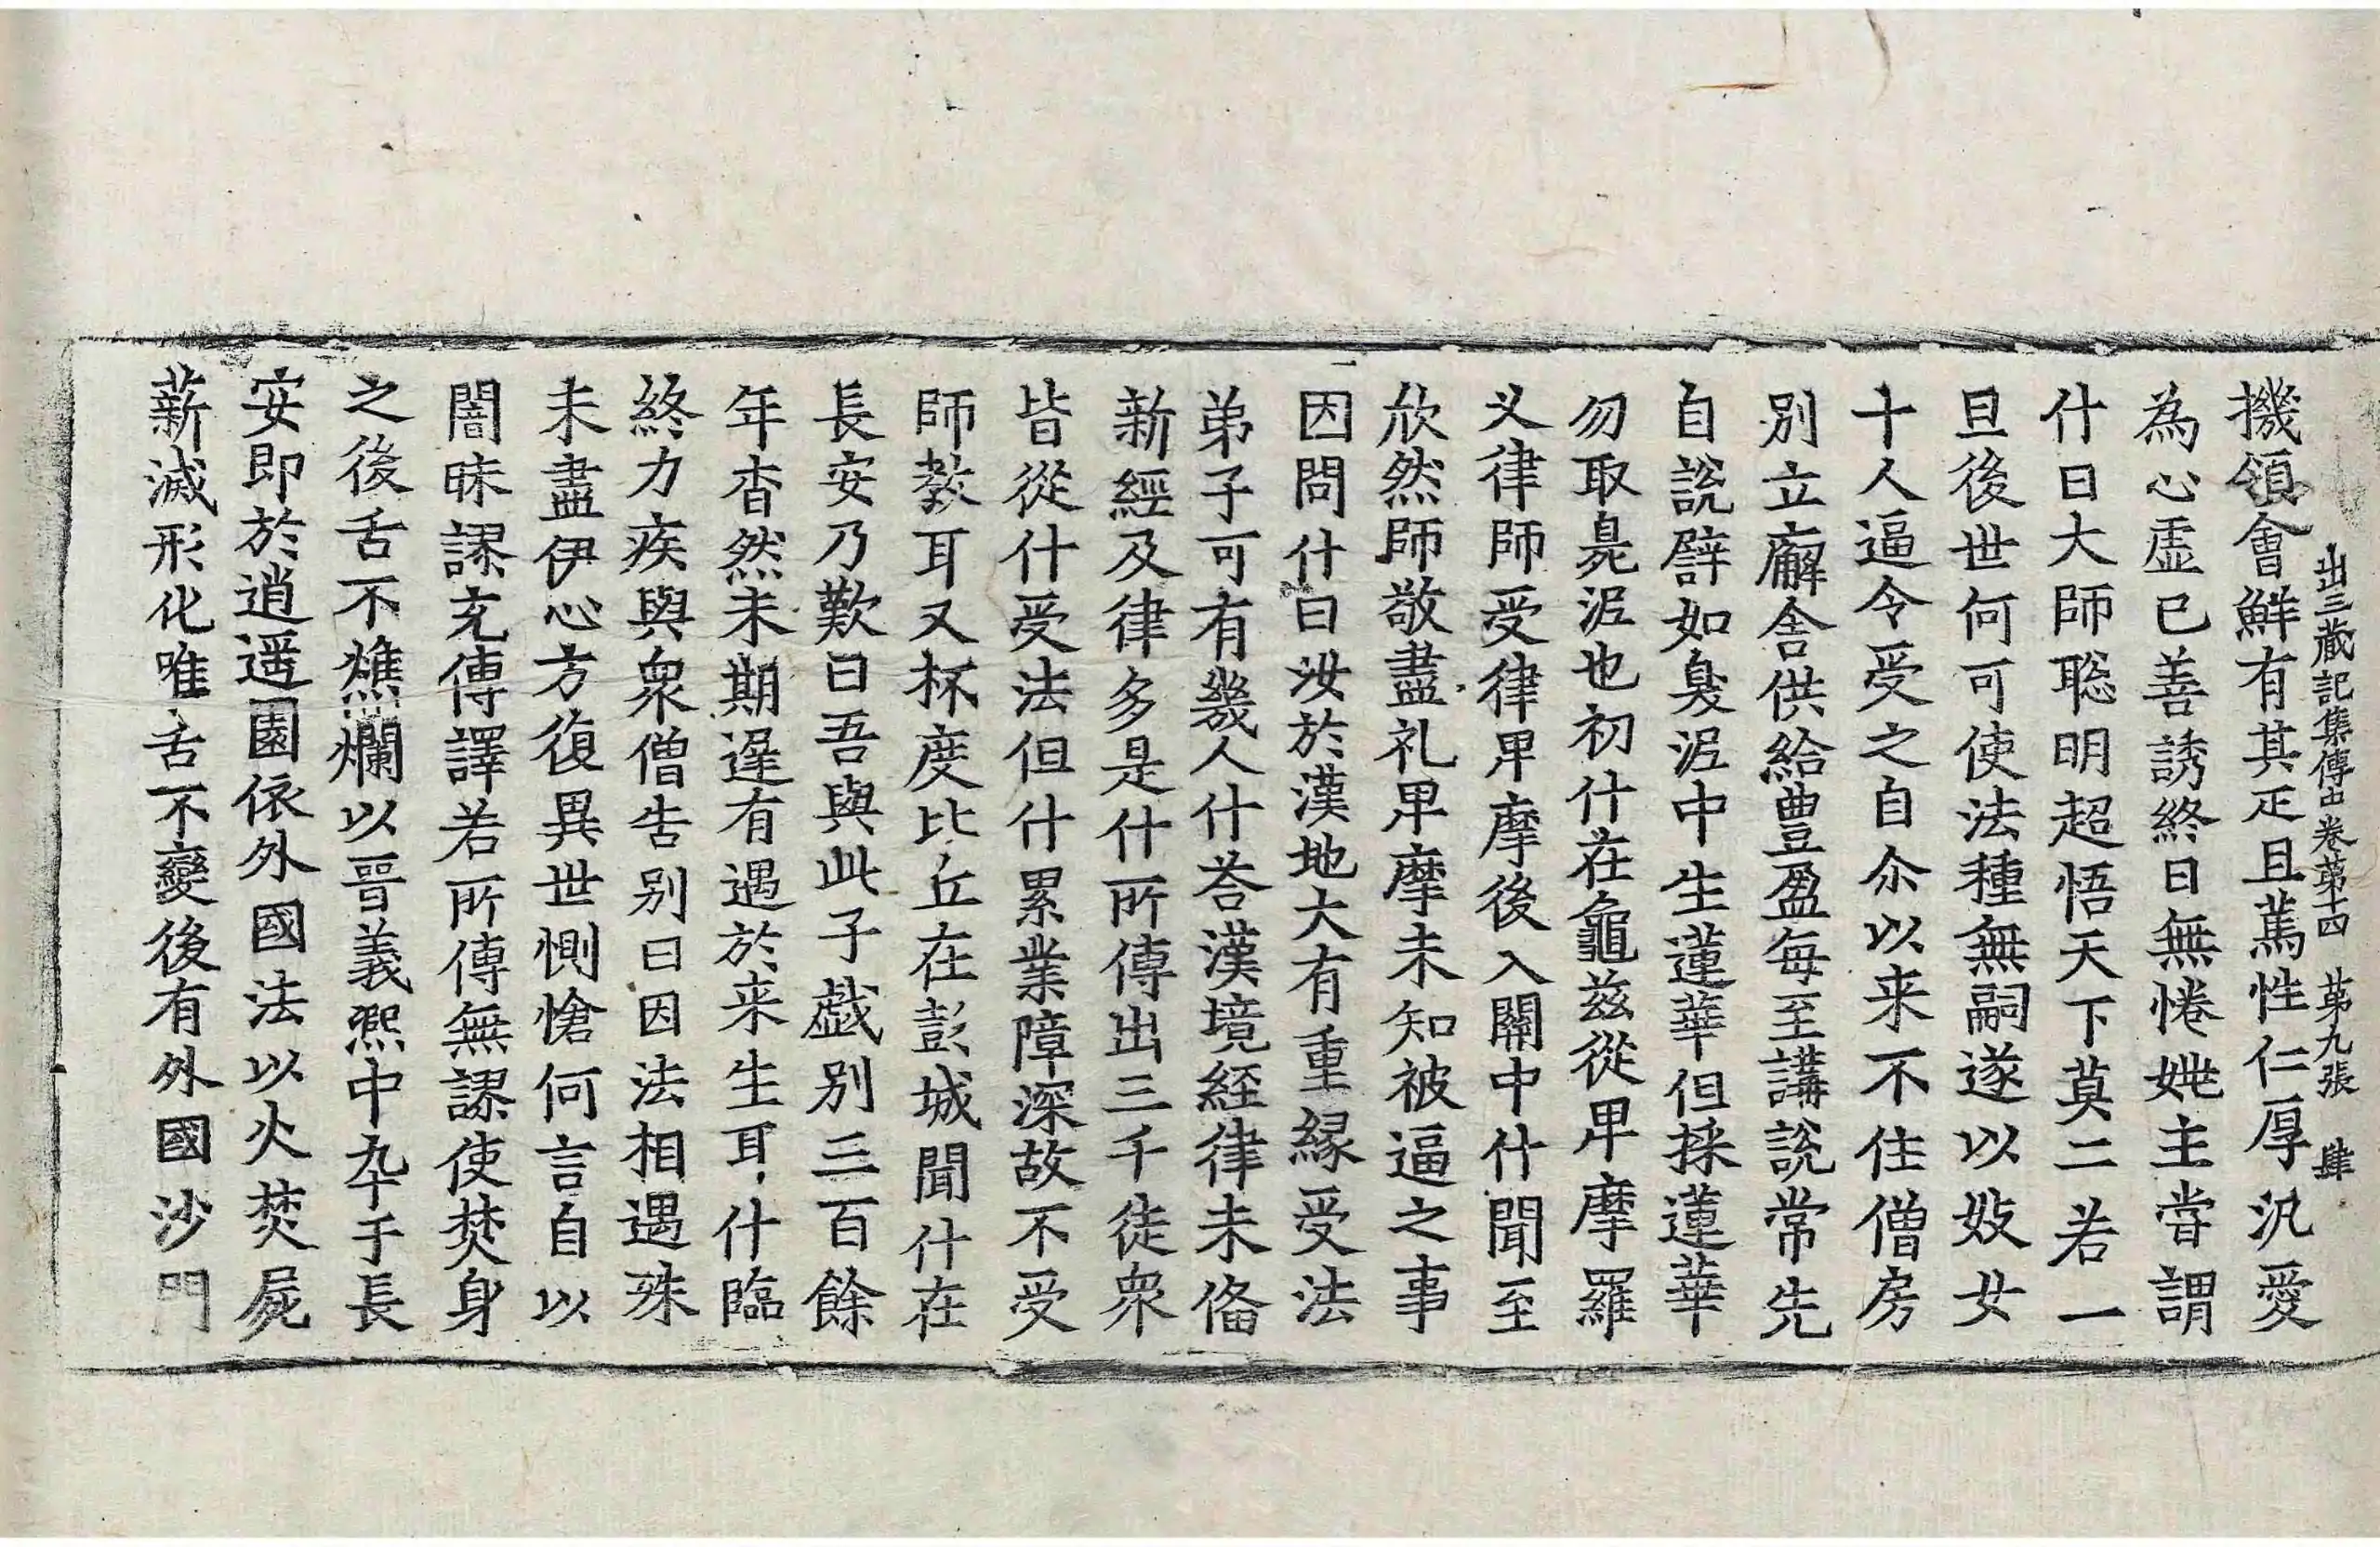 出三蔵記集傳中卷第十四 第九張 肆
機領會鮮有其疋且萬性仁厚汎愛
為心虛已善誘終日無惓姚主甞謂
什曰大師聡明超悟天下莫二若一
旦後世何可使法種無嗣遂以妓女
十人逼令受之自尒以来不住僧房
別立廨舎供給豊盈每至講說常先
自說譬如臭泥中生蓮華但採蓮華
勿取臭泥也初什在龜兹從卑摩羅
义律師受律卑摩後入關中什聞至
欣然師敬盡礼卑摩未知被逼之事
因問什曰汝於漢地大有重縁受法
弟子可有幾人什荅漢境経律未俻
新經及律多是什所傳出三千徒衆
皆從什受法但什累業障深故不受
師教耳又杯度比丘在彭城聞什在
長安乃歎曰吾與此子戯別三百餘
年杳然未期遲有遇於来生耳什臨
終力疾與衆僧告別曰因法相遇殊
未盡伊心方復異世惻愴何言自以
闇昧謬充傳譯若所傳無謬使焚身
之後舌不燋爛以晉義熈中卒于長
安即於逍遥園依外國法以火焚屍
薪滅形化唯舌不變後有外國沙門